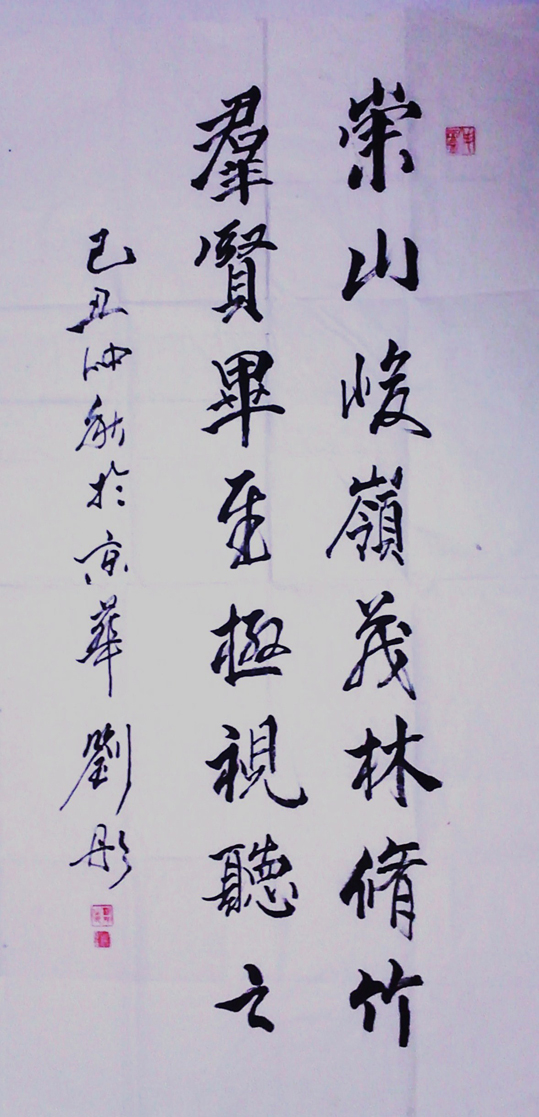 崇山峻嶺茂林脩竹
羣賢畢至極視聽之
己丑仲秋於京華劉彤